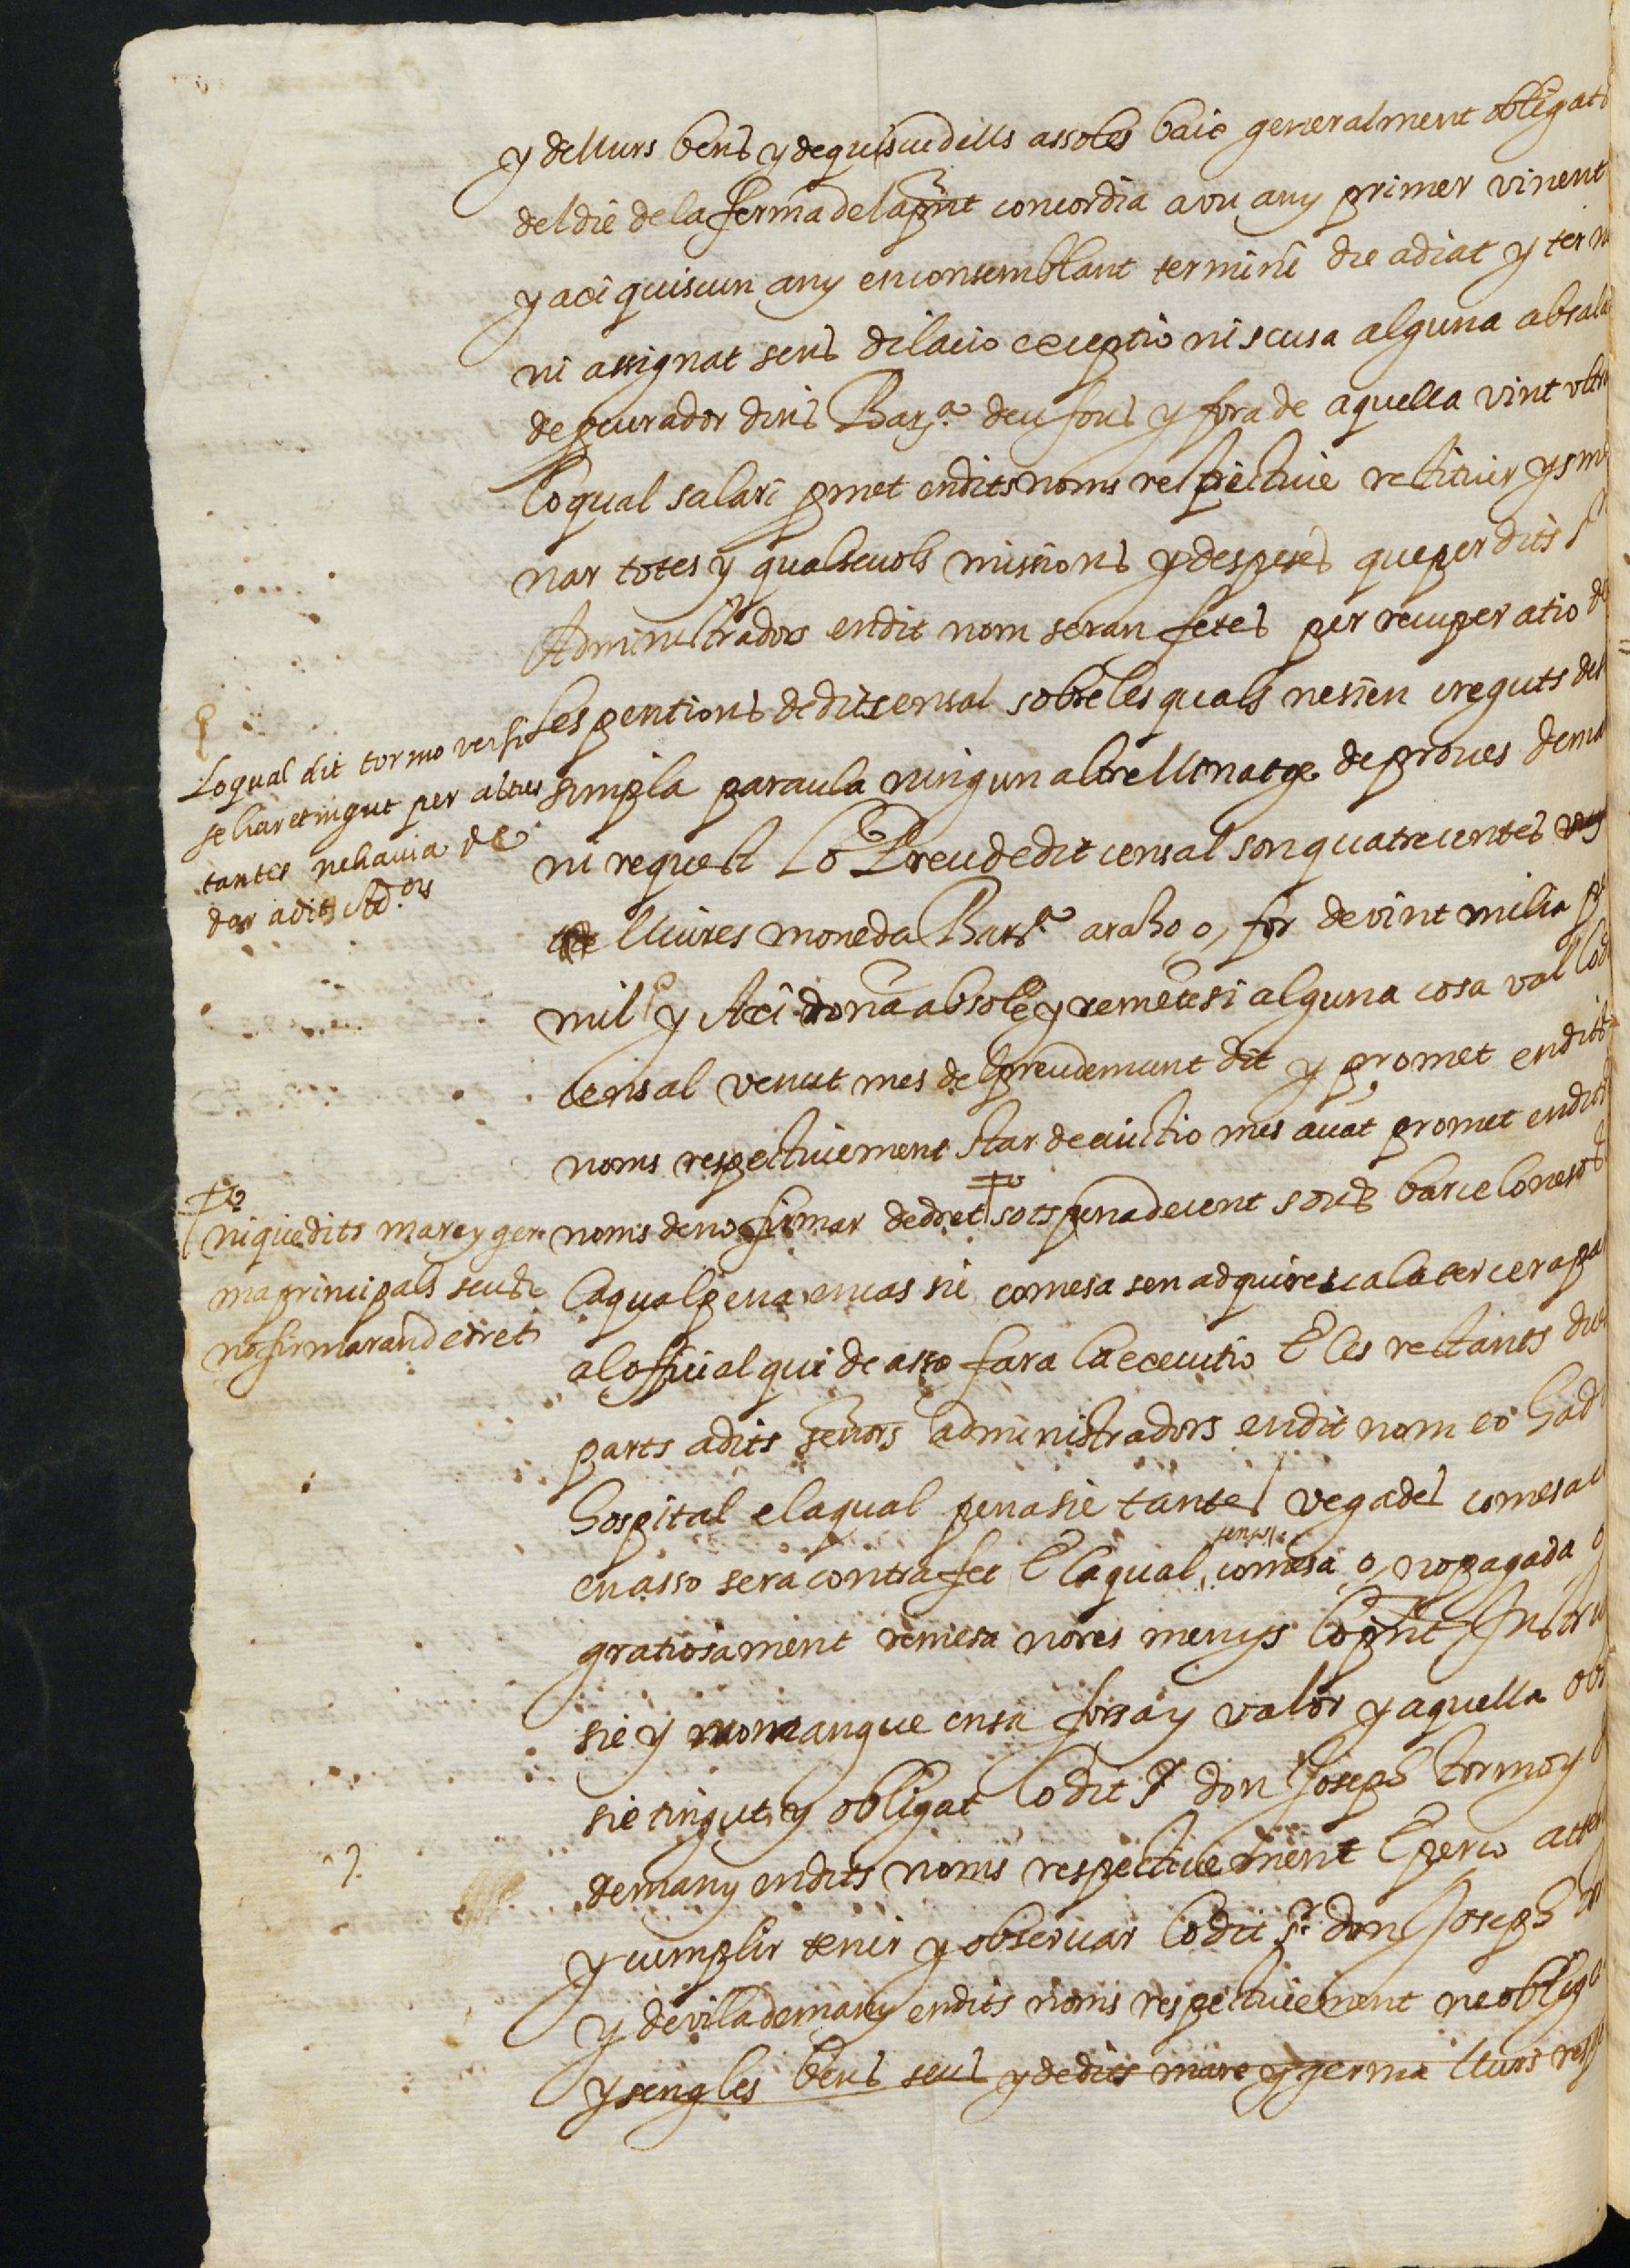 y de llurs bens y de quiscu dells assoles baix generalment obligats
del die de la ferma de la pnt concordia a vn any primer vinent
y axi quiscun any en consemblant termini die adiat y term
ni assignat sens dilacio exceptio ni scusa alguna ab sala
de pcurador dins Bar.ª deu sous y fora de aquella vint
lo qual salari pmet en dits noms respectiue restituir y sme
nar totes y qualseuols missions y despeses que per dits
Administradors en dit nom seran fetes per recuperatio de
les pentions de dit censal sobre les quals ne sien creguts de
simpla paraula ningun altre llinatge de proues dema
ni request Lo Preu de dit censal son quatrecentes
lliures moneda Bar.ª a raho o, for de vint milia
mil y Axi dona absol y remet si alguna cosa val lo d
censal venut mes del preu demunt dit y promet en dits
noms respectiuement star de euictio mes auat promet en dits
noms de no firmar de dret sots pena de cent sous barcelonesos
la qual pena en cas sie comesa sen adquiresca la tercera pa
al official qui de asso fara la executio E les restants dos
parts a dits senors administradors en dit nom eo ha d
hospital e la qual pena sie tantes vegades comesa
en asso sera contrafet E la qual comesa o, no pagada o
gratiosament remesa nores menys lo pnt Instru
sie y no manque en sa forsa y valor y aquella
sie tingut y obligat lo dit Sr don Joseph tormo y
demany en dits noms respectiuement E perco atten
y cumplir tenir y obseruar lo dit Sr. don Joseph
y de vilademany en dits noms respectiuement ne obliga
y sengles bens seus y de dits mare y germa llurs resp
Lo qual dit tormo
se ha retingut per altres
tantes ne hauia de
dar a dits Ad.ors
ni que dits mare y ger
ma principals seus
no firmaran de dret